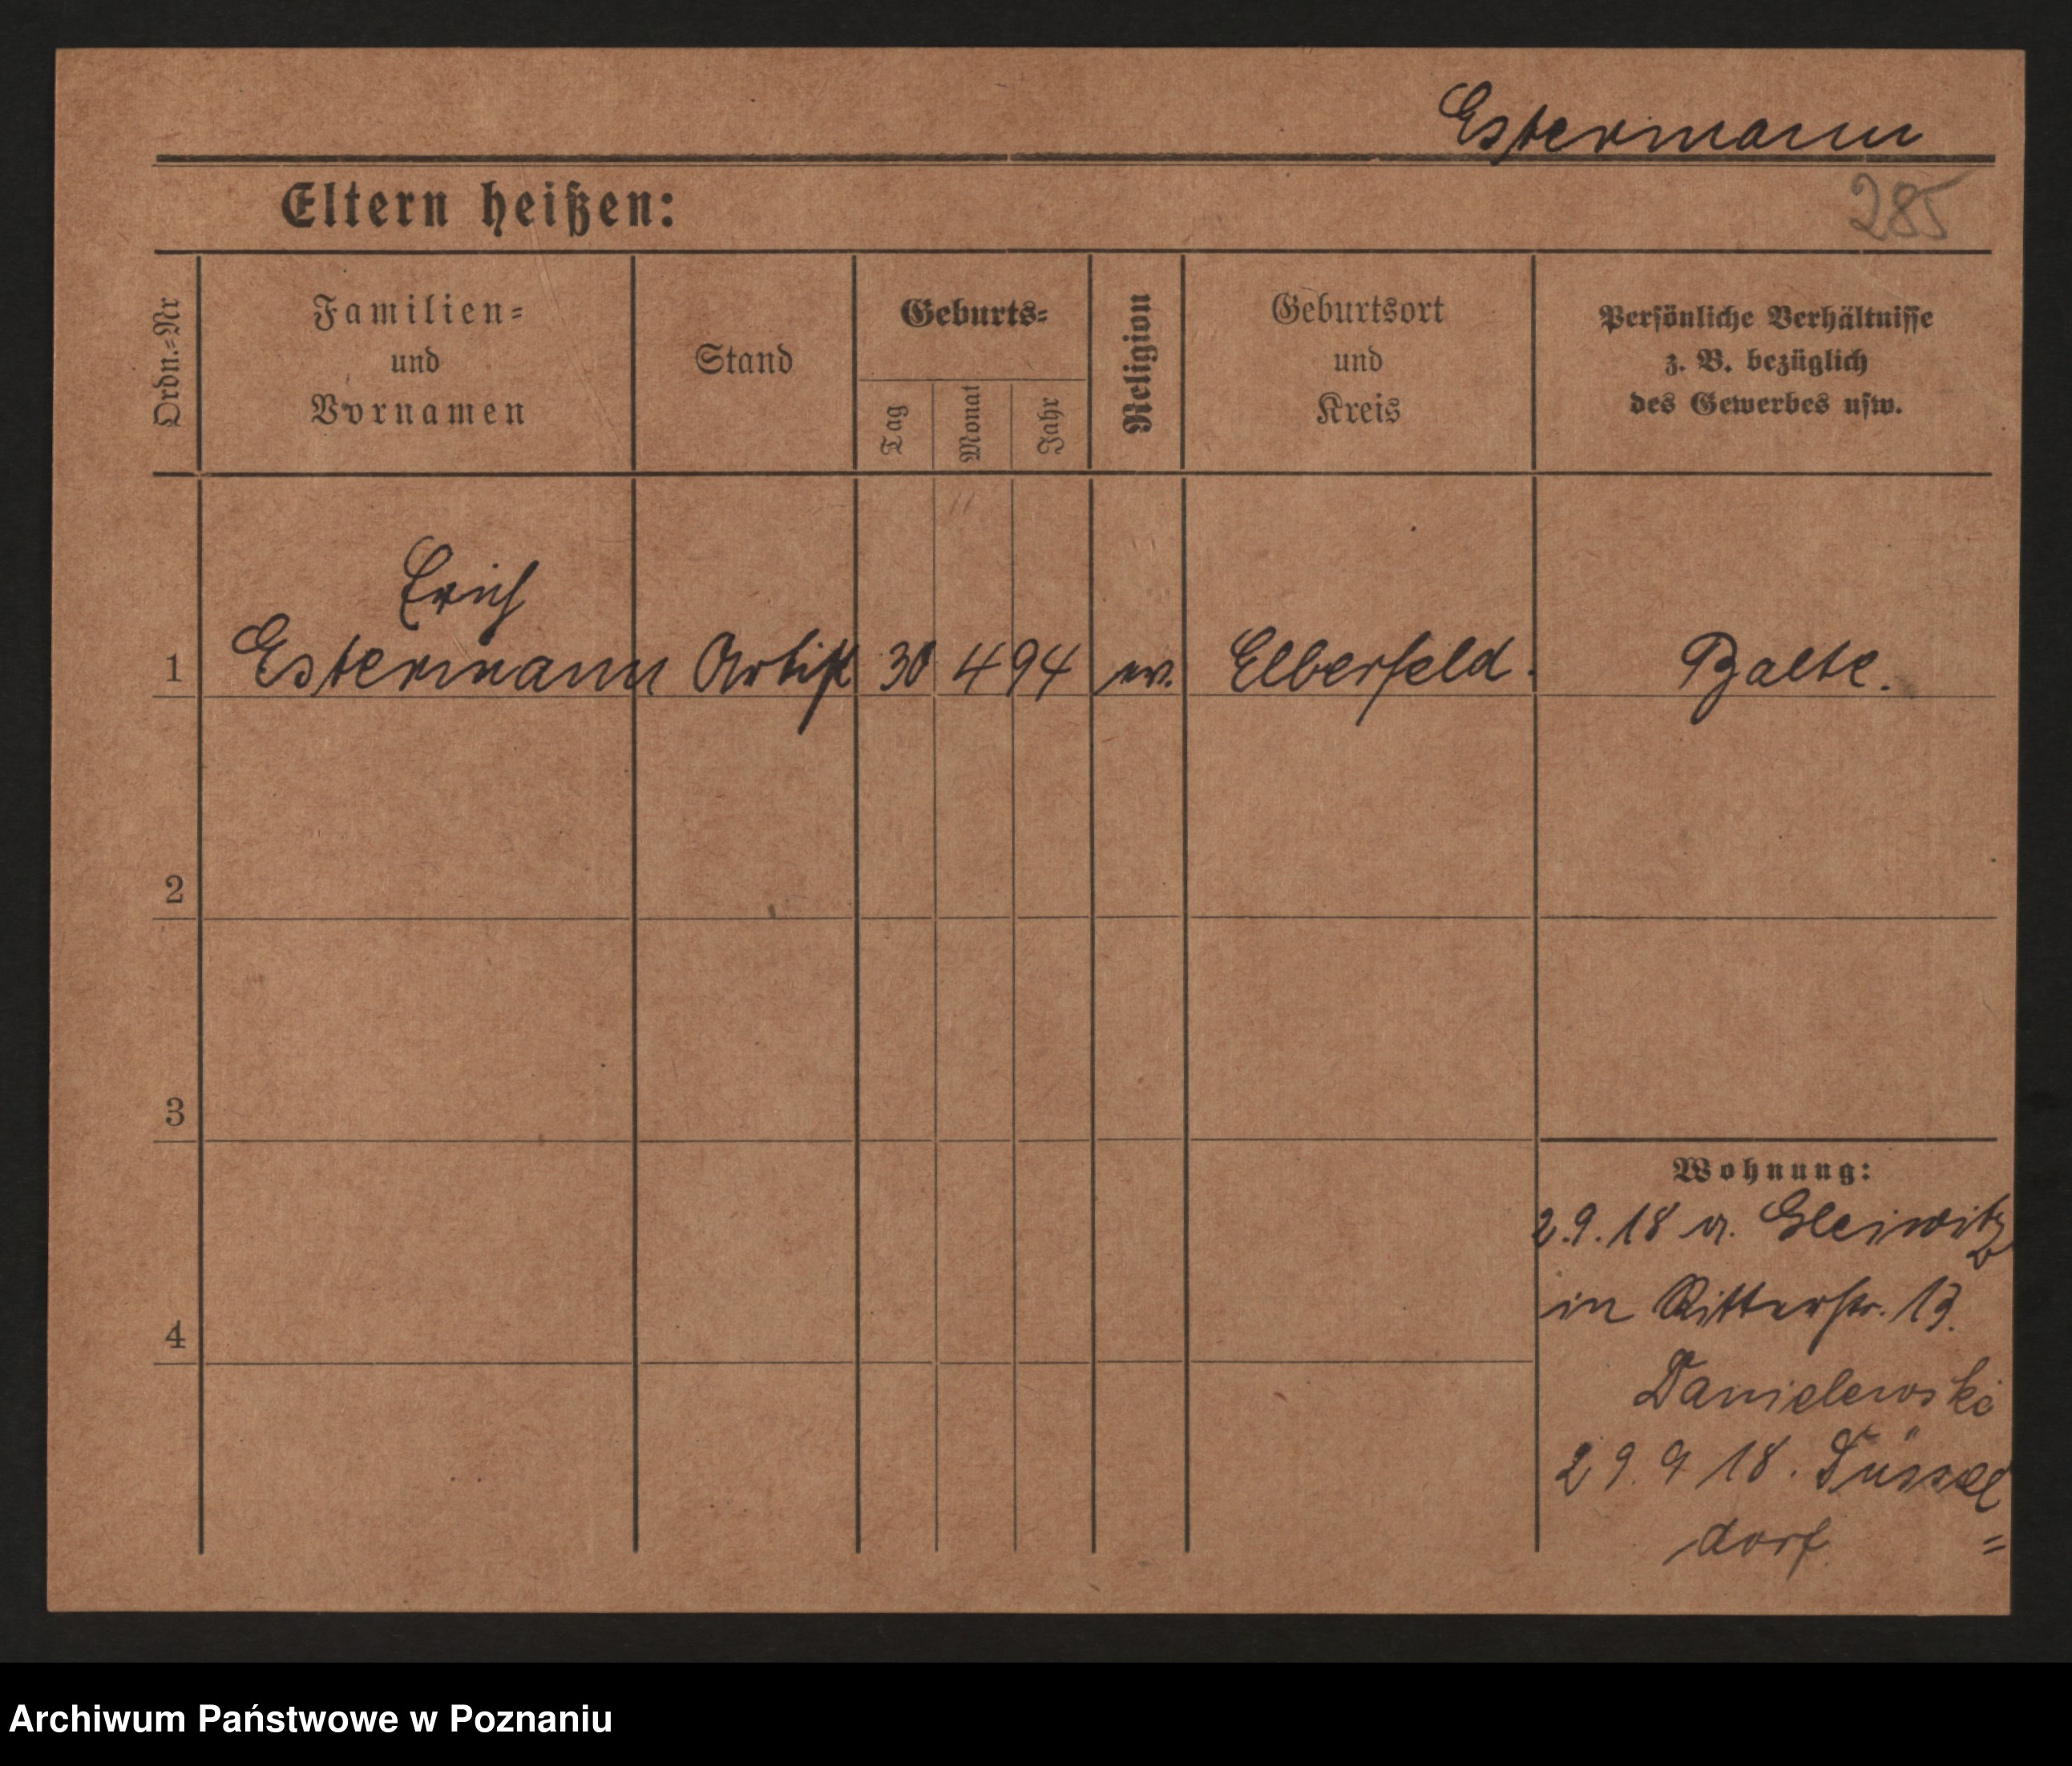 Estermann
Eltern heißen:
285
Ordn.=Nr
Familien=
und
Vornamen
Stand
Geburts=
Tag
Monat
Jahr
Religion
Geburtsort
und
Kreis
Persönliche Verhältnisse
z. B. bezüglich
des Gewerbes usw.
Erich
1 Estermann Artist 30 4 94 ev. Elberfeld.
2
3
4
Wohnung:
2.9.18 v. Gleiwitz
in Ritterstr. 13.
Danielewski
29.9 18. Düssel
dorf. =
Archiwum Państwowe w Poznaniu